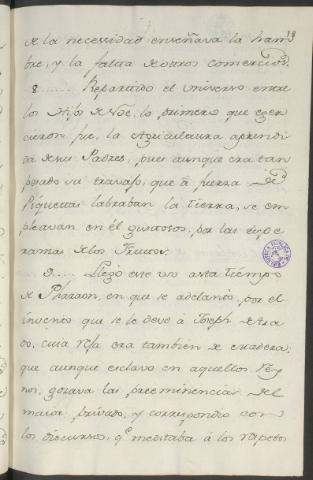 19
de la necessidad enseñava la ham
bre, y la falta de otros comercios.
8..... Repartido el universo entre
los Hijos de Noe, lo primero que exer
cieron fue, la Agricultura aprendi
da de sus Padres, pues aunque era tan
pesado su travajo, que à fuerza de
Piquetas labraban la tierra, se em
pleavan en él gustosos, por las espe
ranzas de los Frutos.
9..... Llegó este uso asta tiempo
de Pharaon, en que se adelantò, por el
invento que se le deve à Joseph de Ara
do, cuia rexa era tambien de madera;
que aunque esclavo en aquellos Rey
nos, gozava las preeminencias del
maior privado, y correspondio con
los discursos, qe meditaba à los repetidos